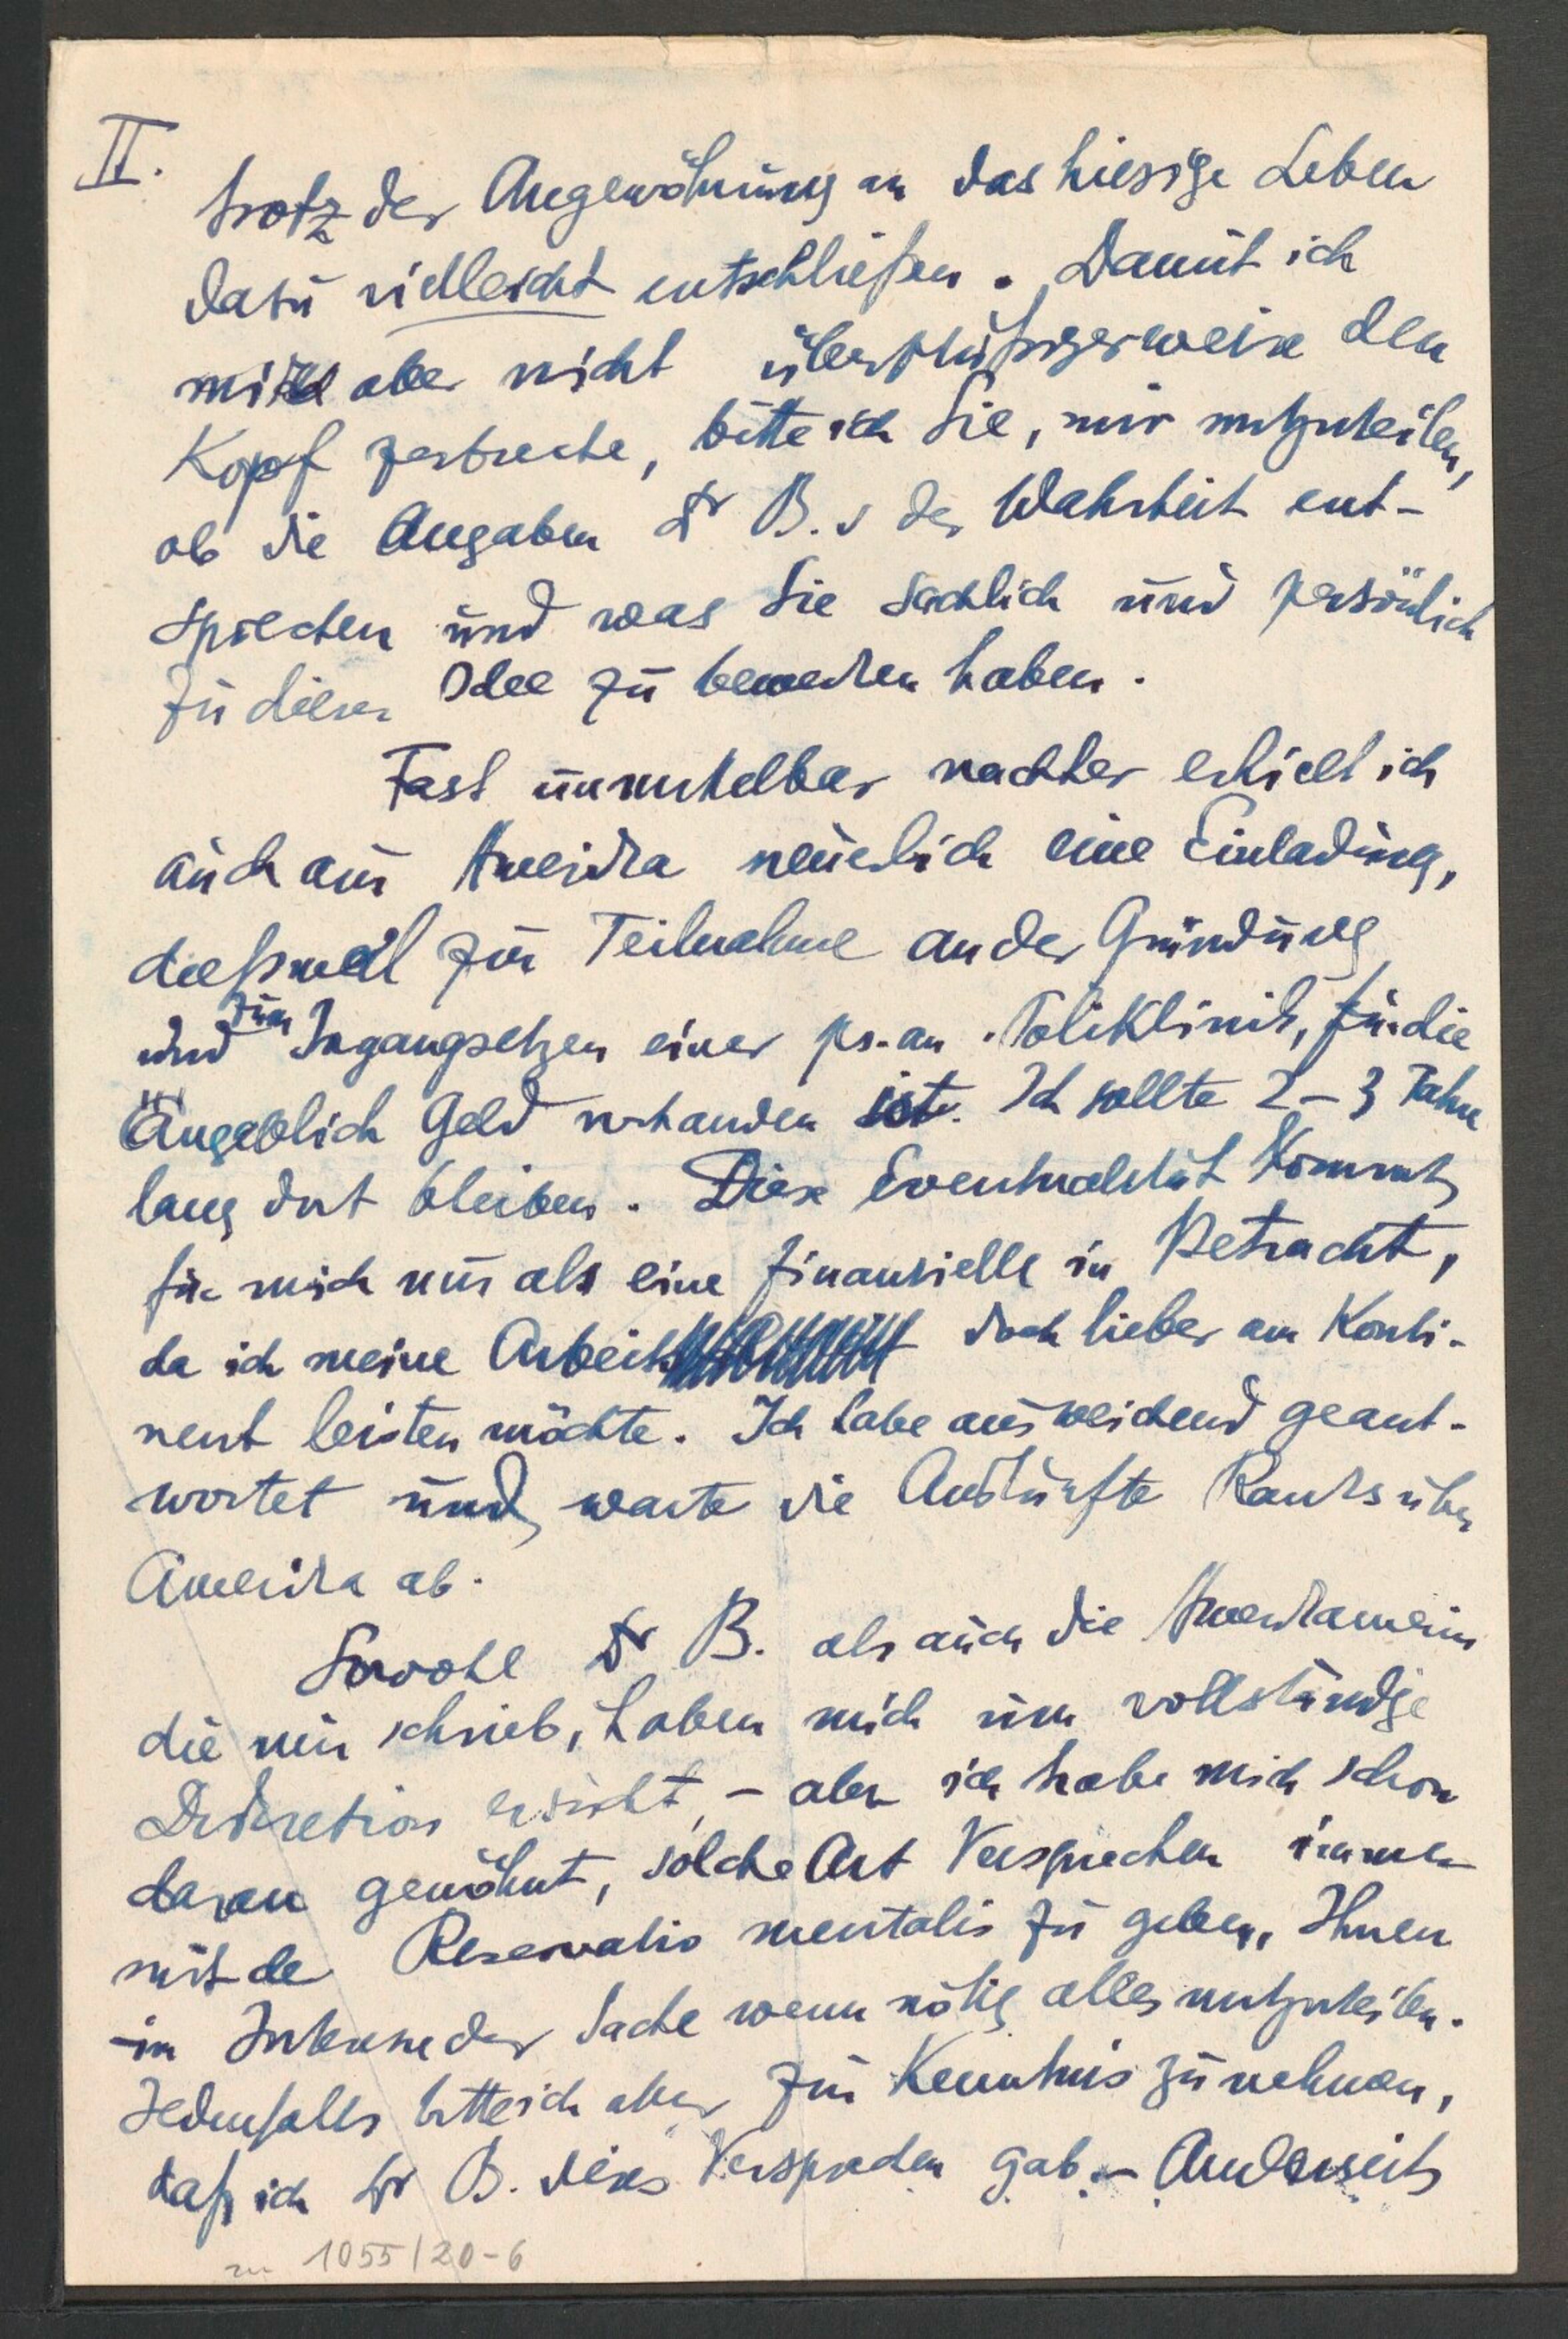 II.
trotz der Angewöhnung an das hiesige Leben
dazu vielleicht entschließen. Damit ich
mir aber nicht überflüßigerweise den
Kopf zerbreche, bitte ich Sie, mir mitzuteilen,
ob die Angaben Dr B.s der Wahrheit ent-
sprechen und was Sie sachlich und persönlich
zu dieser Idee zu bemerken haben.
Fast unmittelbar nachher erhielt ich
auch aus Amerika neuerlich eine Einladung,
dießmal zur Teilnahme an der Gründung
und zum Ingangsetzen einer ps.-an. Poliklinik, für die
angeblich Geld vorhanden ist. Ich sollte 2-3 Jahre
lang dort bleiben. Diese Eventualität kommt
für mich nur als eine finanzielle in Betracht,
da ich meine Arbeit doch lieber am Konti-
nent leisten möchte. Ich habe ausweichend geant-
wortet und warte die Auskünfte Ranks über
Amerika ab.
Sowohl Dr B. als auch die Amerikanerin
die mir schrieb, haben mich um vollständige
Diskretion ersucht, - aber ich habe mich schon
daran gewöhnt, solche Art Versprechen immer
mit der Reservatio mentalis zu geben, Ihnen
im Interesse der Sache wenn nötig alles mitzuteilen.
Jedenfalls bitte ich aber zur Kenntnis zu nehmen,
daß ich Dr B. dieses Versprechen gab. - Anderseits
zu 1055/20-6